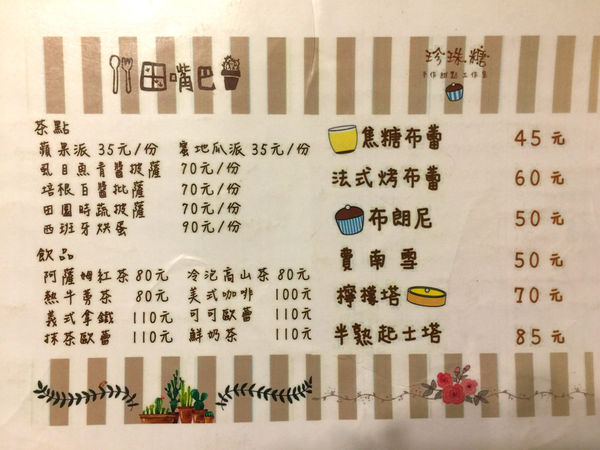 田嘴巴
茶點
蘋果派 35元/份 裏地瓜派 35元/份
虱目魚青醬披薩 70元/份
培根白醬批薩 70元/份
田園時蔬披薩 70元/份
西班牙烘蛋 90元/份
飲品
阿薩姆紅茶 80元 冷泡高山茶 80元
熱牛蒡茶 80元 美式咖啡 100元
義式拿鐵 110元 可可歐蕾 110元
抹茶歐蕾 110元 鮮奶茶 110元
珍珠糖
手作甜點工作室
焦糖布蕾 45元
法式烤布蕾 60元
布朗尼 50元
費南雪 50元
檸檬塔 70元
半熟起士塔 85元